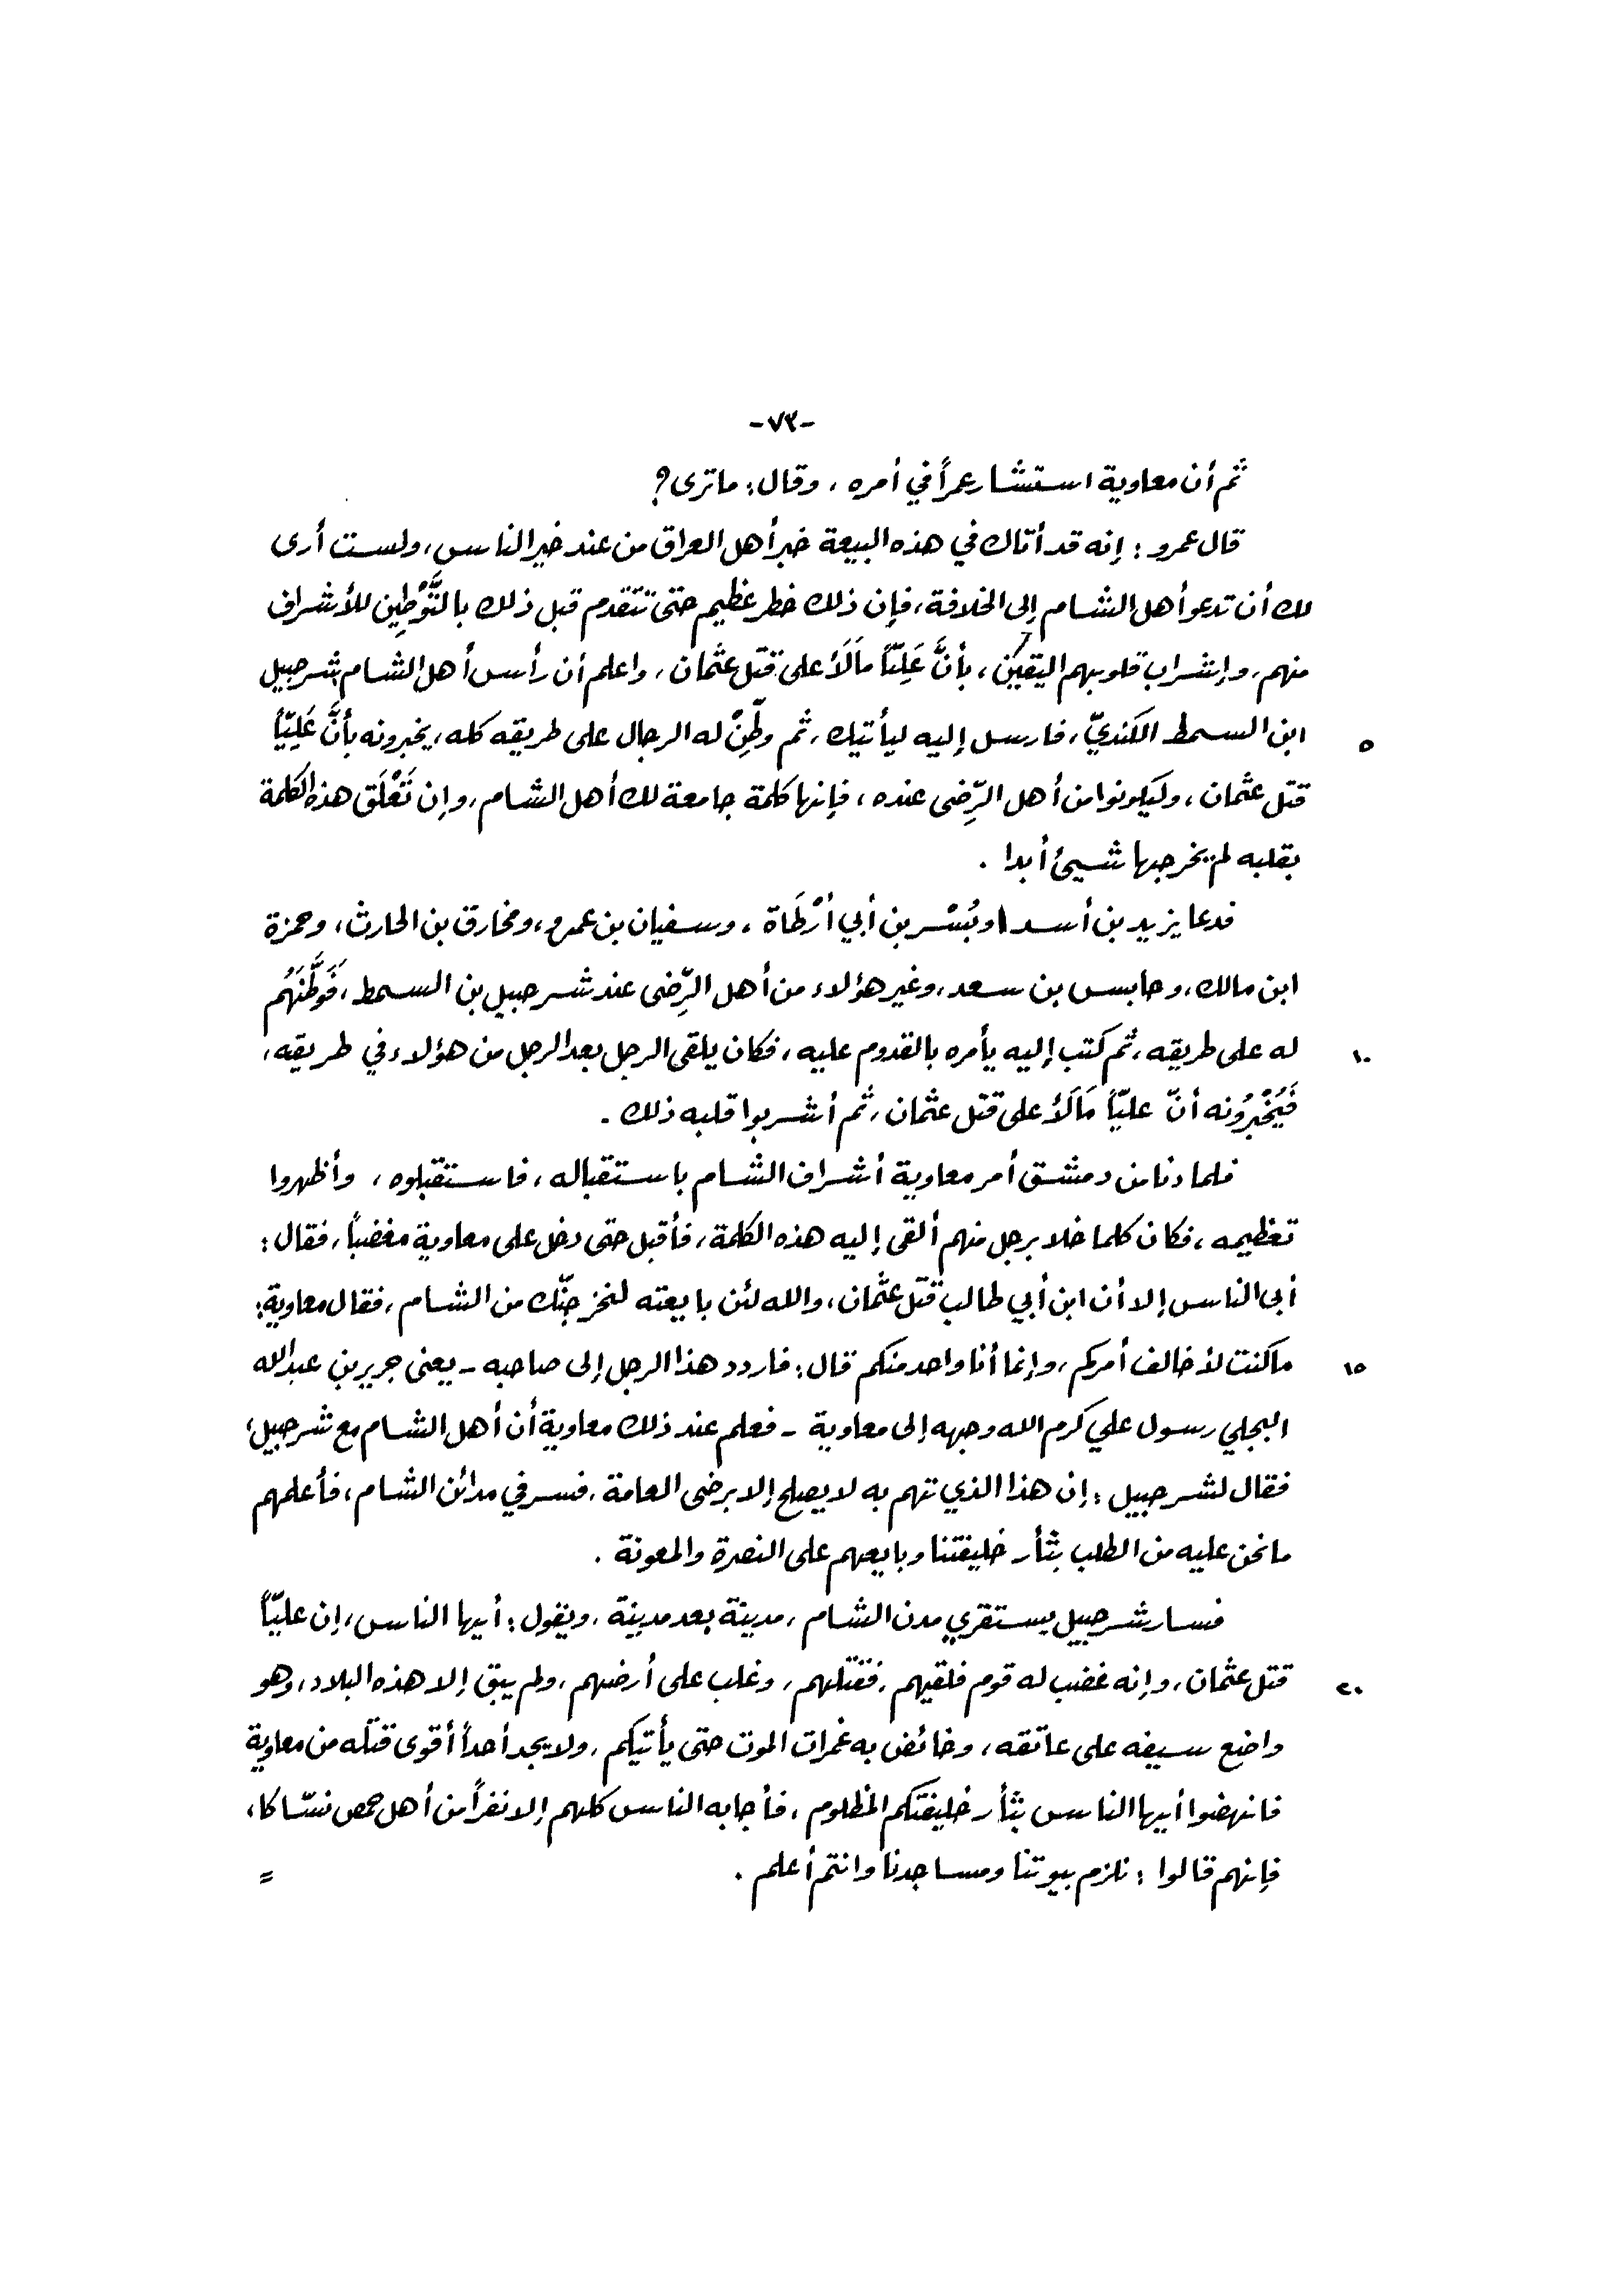 -٧٣-
ثم أن معاوية استشار عمراً في أمره ، وقال: ماترى؟
قال عمرو : إنه قد أتاك في هذه البيعة خبر أهل العراق من عند خير الناس، ولست أرى
لك أن تدعو أهل الشام إلى الخلافة، فإن ذلك خطر عظيم حتى تتقدم قبل ذلك بالتَّوْطِين للأشراف
منهم، وإشراب قلوبهم اليقين ، بأنَّ عَلِيّاً مَالَأ على قتل عثمان، واعلم أن رأس أهل الشام شرحبيل
ابن السمط الكنديّ، فارسل إليه ليأتيك، ثم وطِّنْ له الرجال على طريقه كله، يخبرونه بأنَّ عَلِيّاً
٥
قتل عثمان ، وليكونوا من أهل الرِّضى عنده ، فإنها كلمة جامعة لك أهل الشام، وإن تَعْلَق هذه الكلمة
بقلبه لم يخرجها شيئ أبدا .
فدعا يزيد بن أسد وبُسْر بن أبي أرْطَاة ، وسفيان بن عمرو، ومخارق بن الحارث، وحمزة
ابن مالك، وحابس بن سعد، وغير هؤلاء من أهل الرِّضى عند شرحبيل بن السمط ، فَوَطَّنَهُم
له على طريقه، ثم كتب إليه يأمره بالقدوم عليه ، فكان يلقى الرجل بعد الرجل من هؤلاء في طريقه،
١٠
فَيُخْبِرُونه أنّ عليّاً مَالَأ على قتل عثمان، ثم أشربوا قلبه ذلك .
فلما دنا من دمشق أمر معاوية أشراف الشام باستقباله ، فاستقبلوه ، وأظهروا
تعظيمه ، فكان كلما خلا برجل منهم ألقى إليه هذه الكلمة، فأقبل حتى دخل على معاوية مغضباً، فقال :
أبى الناس إلا أن ابن أبي طالب قتل عثمان، والله لئن بايعته لنخرجنّك من الشام ، فقال معاوية:
ماكنت لأخالف أمركم، وإنما أنا واحد منكم قال: فاردد هذا الرجل إلى صاحبه - يعني جرير بن عبدالله
١٥
البجلي رسول علي كرم الله وجهه إلى معاوية - فعلم عند ذلك معاوية أن أهل الشام مع شرحبيل،
فقال لشرحبيل : إن هذا الذي تهم به لا يصلح إلا برضى العامة ، فسر في مدائن الشام، فأعلمهم
مانحن عليه من الطلب بثأر خليفتنا وبايعهم على النصرة والمعونة .
فسار شرحبيل يستقري مدن الشام ، مدينة بعد مدينة ، ويقول : أيها الناس، إن عليّاً
قتل عثمان، وإنه غضب له قوم فلقيهم، فقتلهم، وغلب على أرضهم، ولم يبق إلا هذه البلاد، وهو
٢٠
واضع سيفه على عاتقه ، وخائض به غمرات الموت حتى يأتيكم، ولا يجد أحداً أقوى قتله من معاوية
فانهضوا أيها الناس بثأر خليفتكم المظلوم ، فأجابه الناس كلهم إلا نفراً من أهل حمص نسّاكا،
فإنهم قالوا : نلزم بيوتنا ومساجدنا وانتم أعلم .
=